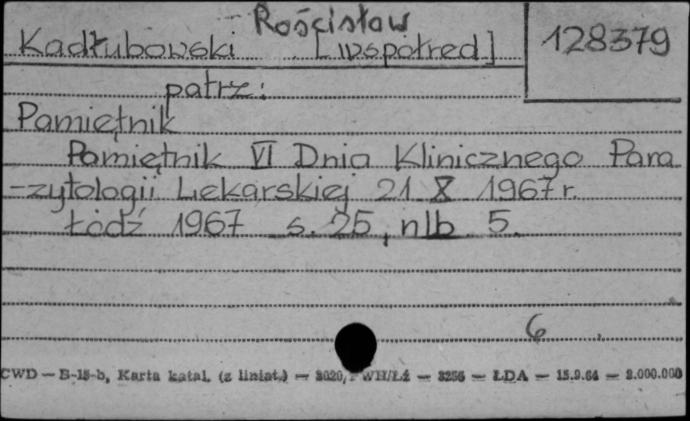 Rościsław
Kadłubowski [współred]
128379
patrz:
Pamiętnik
Pamiętnik VI Dnia Klinicznego Para
-zytologii Lekarskiej 21 X 1967 r.
Łódź 1967 s. 25, nlb 5.
6
CWD — B-15-b, Karta katal. (z liniat.) — 3020, WH/Łź — 3256 — ŁDA — 15.9.64 — 2.000.000